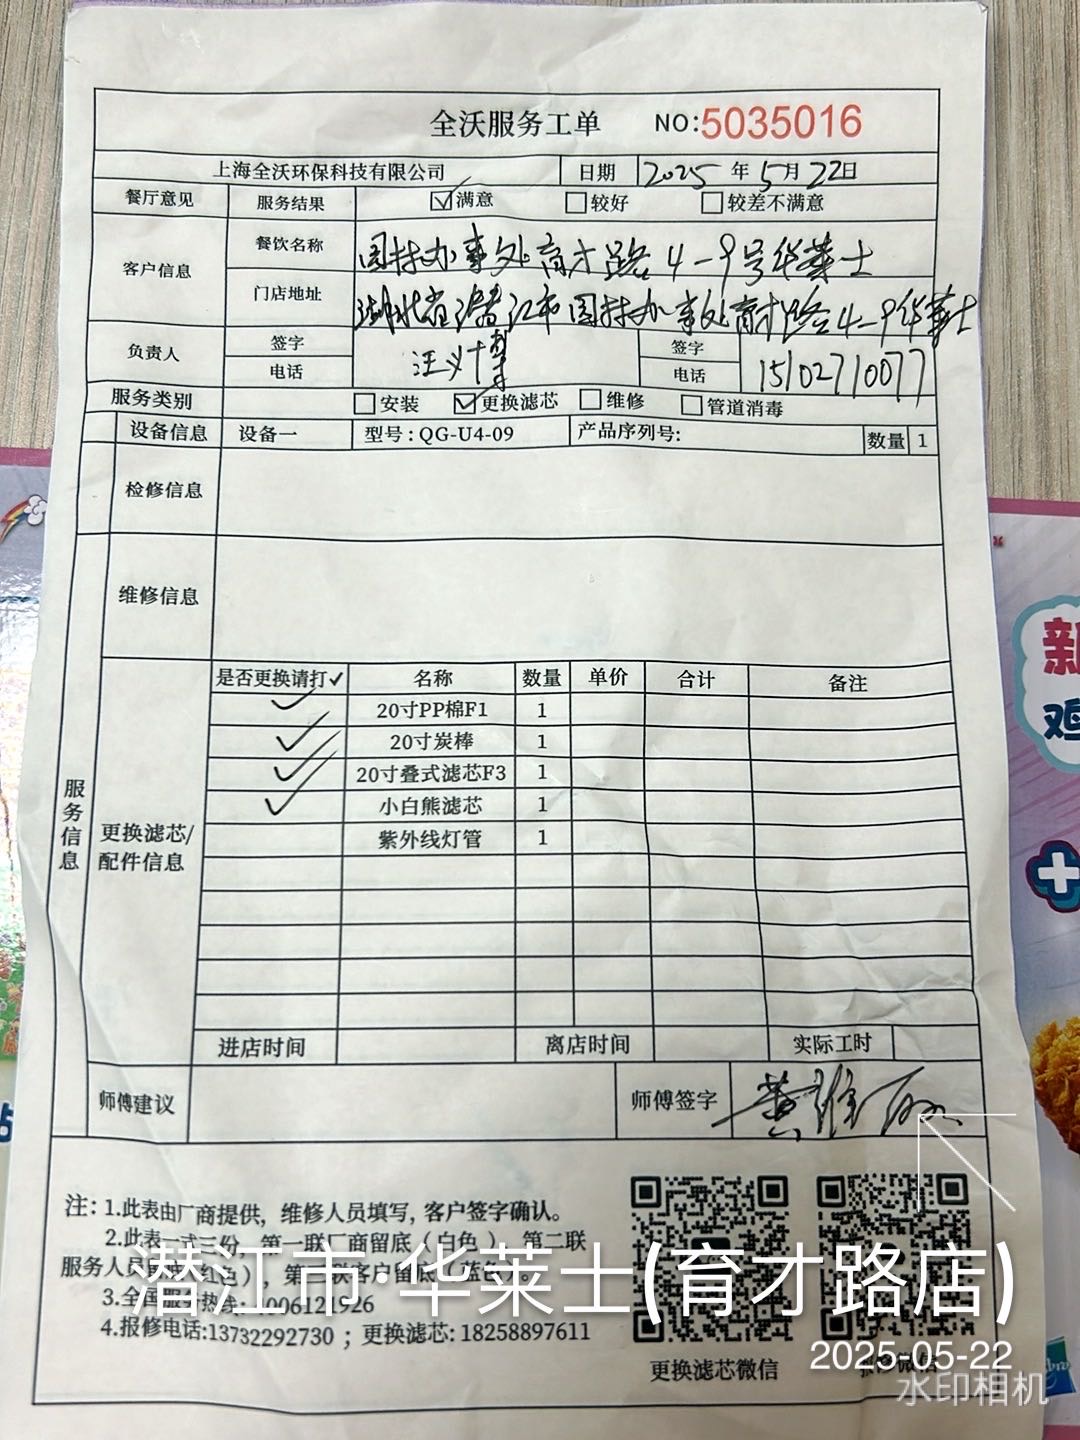 全沃服务工单 NO:5035016
上海全沃环保科技有限公司 日期 2025年5月22日
餐厅意见 服务结果 ☑满意 □较好 □较差不满意
客户信息 餐饮名称 园林办事处育才路4-9号华莱士
门店地址 湖北省潜江市园林办事处育才路4-9华莱士
负责人 签字 签字
电话 电话 15102710077
服务类别 □安装 ☑更换滤芯 □维修 □管道消毒
设备信息 设备一 型号:QG-U4-09 产品序列号: 数量 1
检修信息
维修信息
服务信息
更换滤芯/配件信息
是否更换请打✓ 名称 数量 单价 合计 备注
✓ 20寸PP棉F1 1
✓ 20寸炭棒 1
✓ 20寸叠式滤芯F3 1
✓ 小白熊滤芯 1
紫外线灯管 1
进店时间 离店时间 实际工时
师傅建议 师傅签字 黄维
注: 1.此表由厂商提供, 维修人员填写, 客户签字确认。
2.此表一式三份, 第一联厂商留底(白色), 第二联
服务人员 红色), 第三联客户留底(蓝色)。
3.全国服务热线: 006121926
4.报修电话:13732292730 ; 更换滤芯: 18258897611
更换滤芯微信
潜江市·华莱士(育才路店)
2025-05-22
水印相机
新
鸡
+